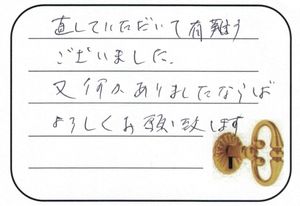 直していただいて有難う
ございました.
又何かありましたならば
よろしくお願い致します